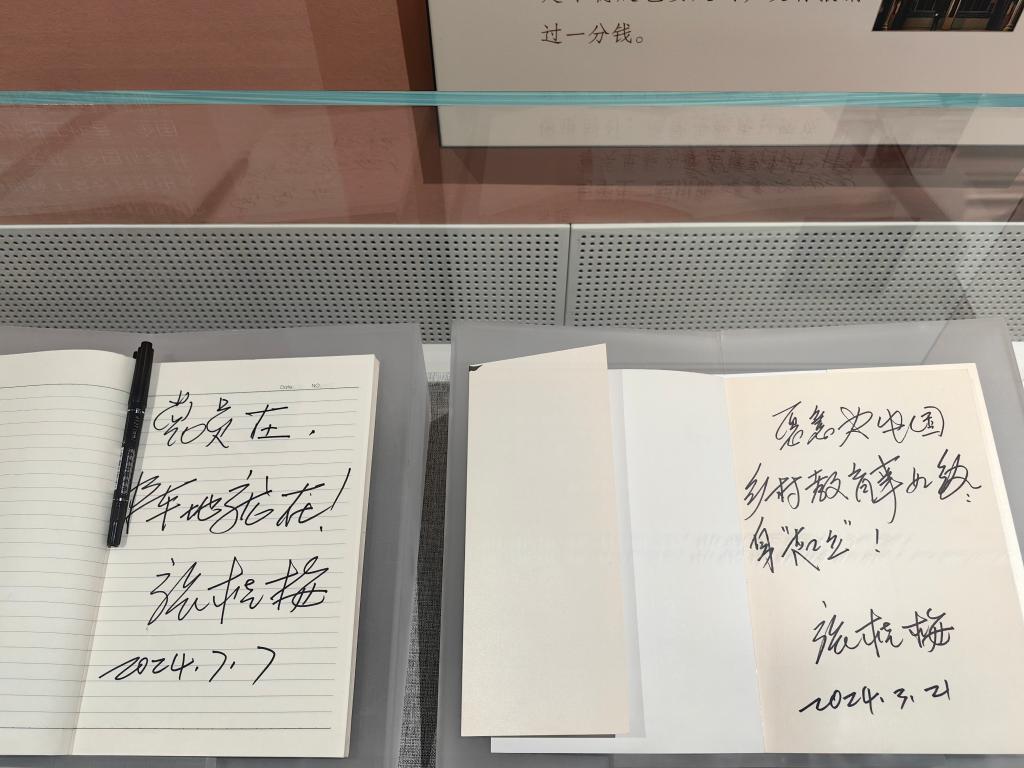 过一分钱。
Date NO.
党员在，
阵地就在！
张桂梅
2024.7.7
愿意为中国
乡村教育事业终
身“ ”！
张桂梅
2024.3.21